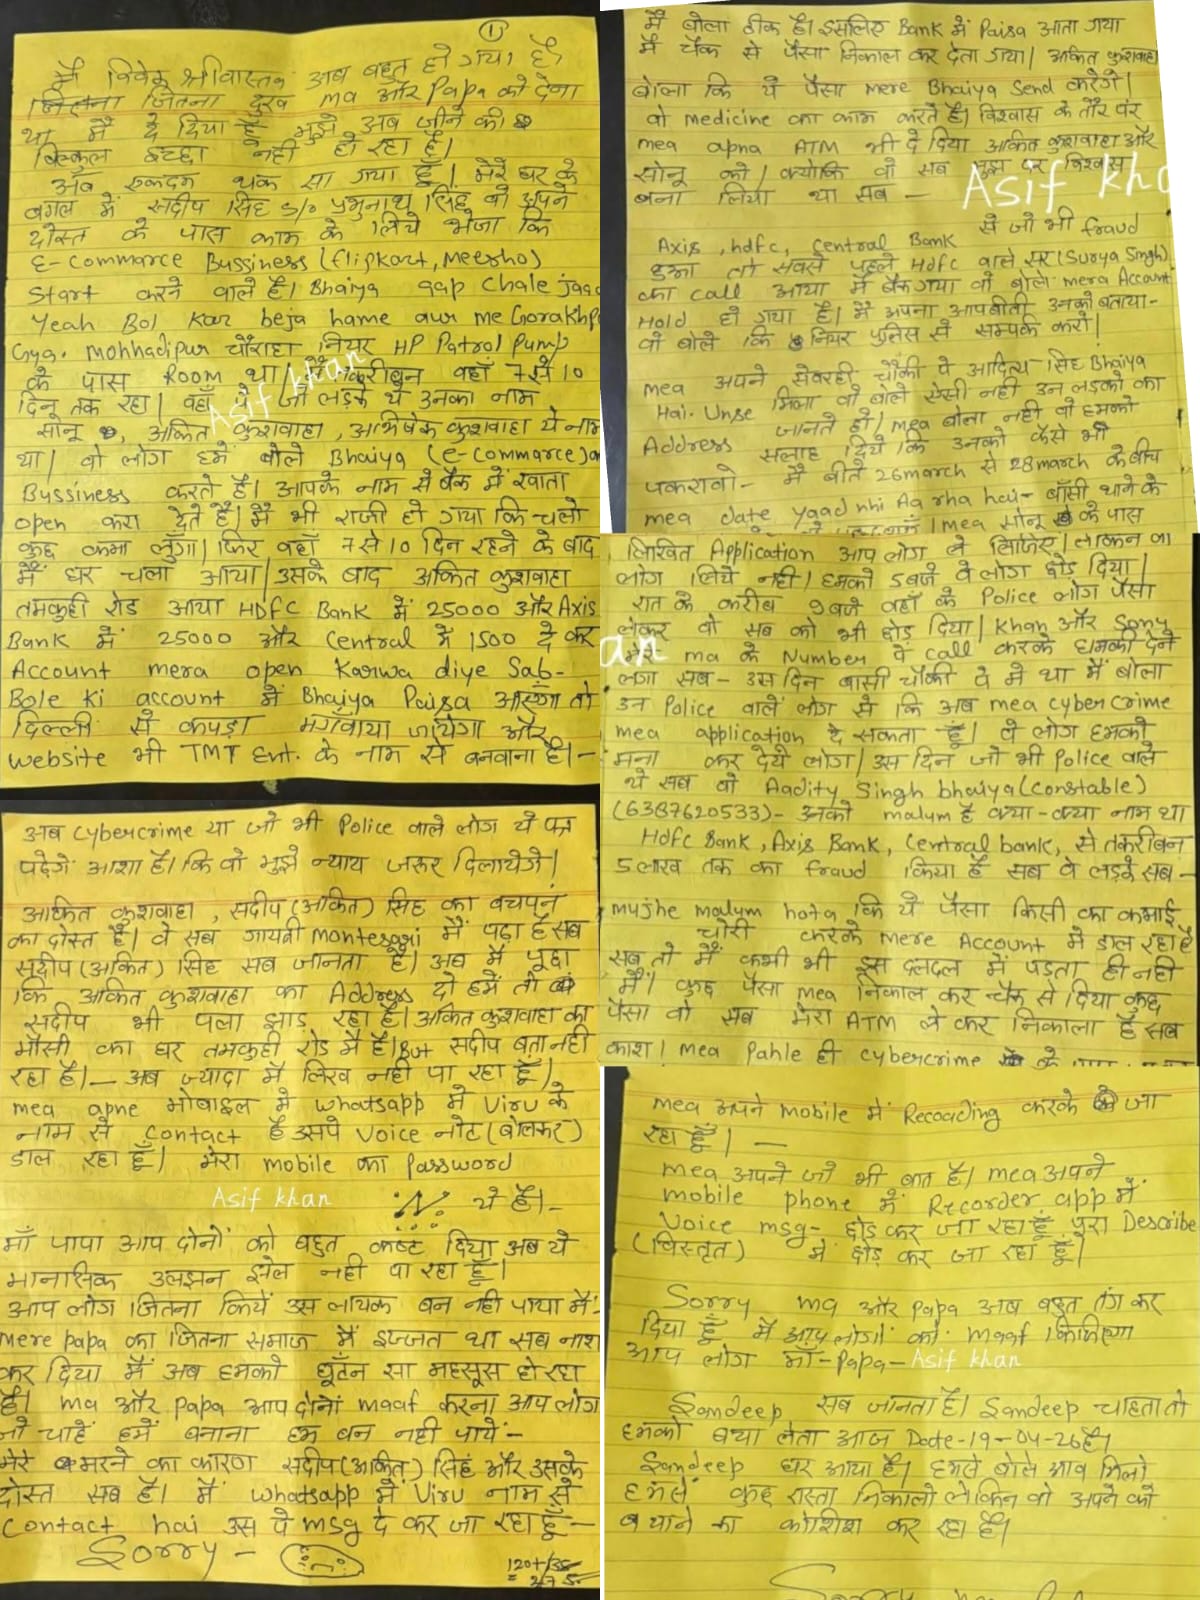 ①
मैं विवेक श्रीवास्तव अब बहुत हो गया है,
जितना जितना दुख ma और Papa को देना
था मैं दे दिया हूँ मुझे अब जीने की
बिल्कुल इच्छा नहीं हो रहा है।
अब एकदम थक सा गया हूँ। मेरे घर के
बगल में संदीप सिंह S/o प्रभुनाथ सिंह वो अपने
दोस्त के पास काम के लिये भेजा कि
E-Commarce Bussiness (flipkart, Meesho)
Start करने वाले है। Bhaiya aap Chale jaao
Yeah Bol Kar beja hame aur me Gorakhp
Gya. Mohhadipur चौराहा नियर HP Patrol Pump
के पास Room था तकरीबन वहाँ 7 से 10
दिन तक रहा। वहाँ पे जो लड़के थे उनका नाम
सोनू, अंकित कुशवाहा, अभिषेक कुशवाहा ये नाम
था। वो लोग हमें बोले Bhaiya (e-Commarce)
Bussiness करते है। आपके नाम से बैंक में खाता
open करा देते है। मैं भी राजी हो गया कि चलो
कुछ कमा लूँगा। फिर वहाँ 7 से 10 दिन रहने के बाद
मैं घर चला आया। उसके बाद अंकित कुशवाहा
तमकुही रोड आया HDFC Bank में 25000 और Axis
Bank में 25000 और Central में 1500 दे कर
Account mera open Karwa diye Sab-
Bole Ki account में Bhaiya Paisa आएगा तो
दिल्ली से कपड़ा मंगवाया जायेगा और
website भी TMT Ent. के नाम से बनवाना है।-
Asif khan
मैं बोला ठीक है। इसलिए Bank में Paisa आता गया
मैं चैक से पैसा निकाल कर देता गया। अंकित कुशवाहा
बोला कि ये पैसा mere Bhaiya Send करेंगे।
वो medicine का काम करते है। विश्वास के तौर पर
mea apna ATM भी दे दिया अंकित कुशवाहा और
सोनू को। क्योंकि वो सब मुझ पर विश्वास
बना लिया था सब -
Asif kha
Axis, hdfc, Central Bank से जो भी fraud
हुआ तो सबसे पहले Hdfc वाले सर (Surya Singh)
का call आया मैं बैंक गया वो बोले mera Account
Hold हो गया है। मैं अपना आपबीती उनको बताया-
वो बोले कि नियर पुलिस से सम्पर्क करो।
mea अपने सेवरही चौकी पे आदित्य सिंह Bhaiya
Hai. Unse मिला वो बोले ऐसी नही उन लड़को का
Address जानते हो। mea बोला नही वो हमको
सलाह दिये कि उनको कैसे भी
पकरावो- मैं बीते 26 march से 28 march के बीच
mea date yaad nhi Aa rha hai- बाँसी थाने के
mea सोनू के पास
लिखित Application आप लोग ले लिजिए। लेकिन वो
लोग लिये नही। हमको 5 बजे वे लोग छोड़ दिया।
रात के करीब 9 बजे वहाँ के Police लोग पैसा
लेकर वो सब को भी छोड़ दिया। Khan और Sonu
an
मेरे ma के Number पे call करके धमकी देने
लगा सब- उस दिन बासी चौकी पे मे था मैं बोला
उन Police वालें लोग से कि अब mea cybercrime
mea application दे सकता हूँ। वे लोग हमको
मना कर देये लोग। उस दिन जो भी Police वाले
थे सब वो Aadity Singh bhaiya (constable)
(6387620533)- उनको malum है क्या-क्या नाम था
Hdfc Bank, Axis Bank, Central bank, से तकरीबन
5 लाख तक का fraud किया है सब वे लड़के सब-
mujhe malum hota कि ये पैसा किसी का कमाई
चोरी करके mere Account मे डाल रहा है
सब तो मैं कभी भी इस दलदल में पड़ता ही नही
मैं। कुछ पैसा mea निकाल कर चैक से दिया कुछ
पैसा वो सब मेरा ATM ले कर निकाला है सब
काश। mea Pahle ही cybercrime के
अब cybercrime या जो भी Police वाले लोग ये पत्र
पढेगें आशा है। कि वो मुझे न्याय जरूर दिलायेगे।
अंकित कुशवाहा, संदीप (अंकित) सिंह का बचपन
का दोस्त है। वे सब गायत्री Montessari में पढ़ा है सब
संदीप (अंकित) सिंह सब जानता है। अब मैं पूछा
कि अंकित कुशवाहा का Address दो हमें तो
संदीप भी पला झाड़ रहा है। अंकित कुशवाहा का
मौसी का घर तमकुही रोड मे है। But संदीप बता नही
रहा है।- अब ज्यादा मैं लिख नही पा रहा हूँ।
mea apne मोबाइल मे whatsapp मे Viru के
नाम से contact है उसपे Voice नोट (बोलकर)
डाल रहा हूँ। मेरा mobile का Password
Asif khan
ये है।-
माँ पापा आप दोनों को बहुत कष्ट दिया अब ये
मानसिक उलझन झेल नही पा रहा हूँ।
आप लोग जितना कियें उस लायक बन नही पाया मैं-
mere papa का जितना समाज में इज्जत था सब नाश
कर दिया मैं अब हमको घूँटन सा महसूस हो रहा
है। ma और Papa आप दोनों maaf करना आप लोग
जो चाहें हमें बनाना हम बन नही पायें-
मेरे मरने का कारण संदीप (अंकित) सिंह और उसके
दोस्त सब है। मैं whatsapp में Viru नाम से
Contact hai उस पे msg दे कर जा रहा हूँ-
Sorry-
mea अपने mobile में Recoading करके जा
रहा हूँ। -
mea अपने जो भी बात है। mea अपने
mobile phone में Recorder app में
Voice msg- छोड़ कर जा रहा हूँ पूरा Describe
(विस्तृत) में छोड़ कर जा रहा हूँ।
Sorry ma और Papa अब बहुत तंग कर
दिया हूँ मैं आप लोगों को. maaf किजिएगा
आप लोग माँ-Papa-
Asif khan
Sandeep सब जानता है। Sandeep चाहता तो
हमको बचा लेता आज Date-19-04-26 है।
Sandeep घर आया है। हमसे बोले आव मिलो
हमसे कुछ रास्ता निकालो लेकिन वो अपने को
बचाने का कोशिश कर रहा है।
Sorry